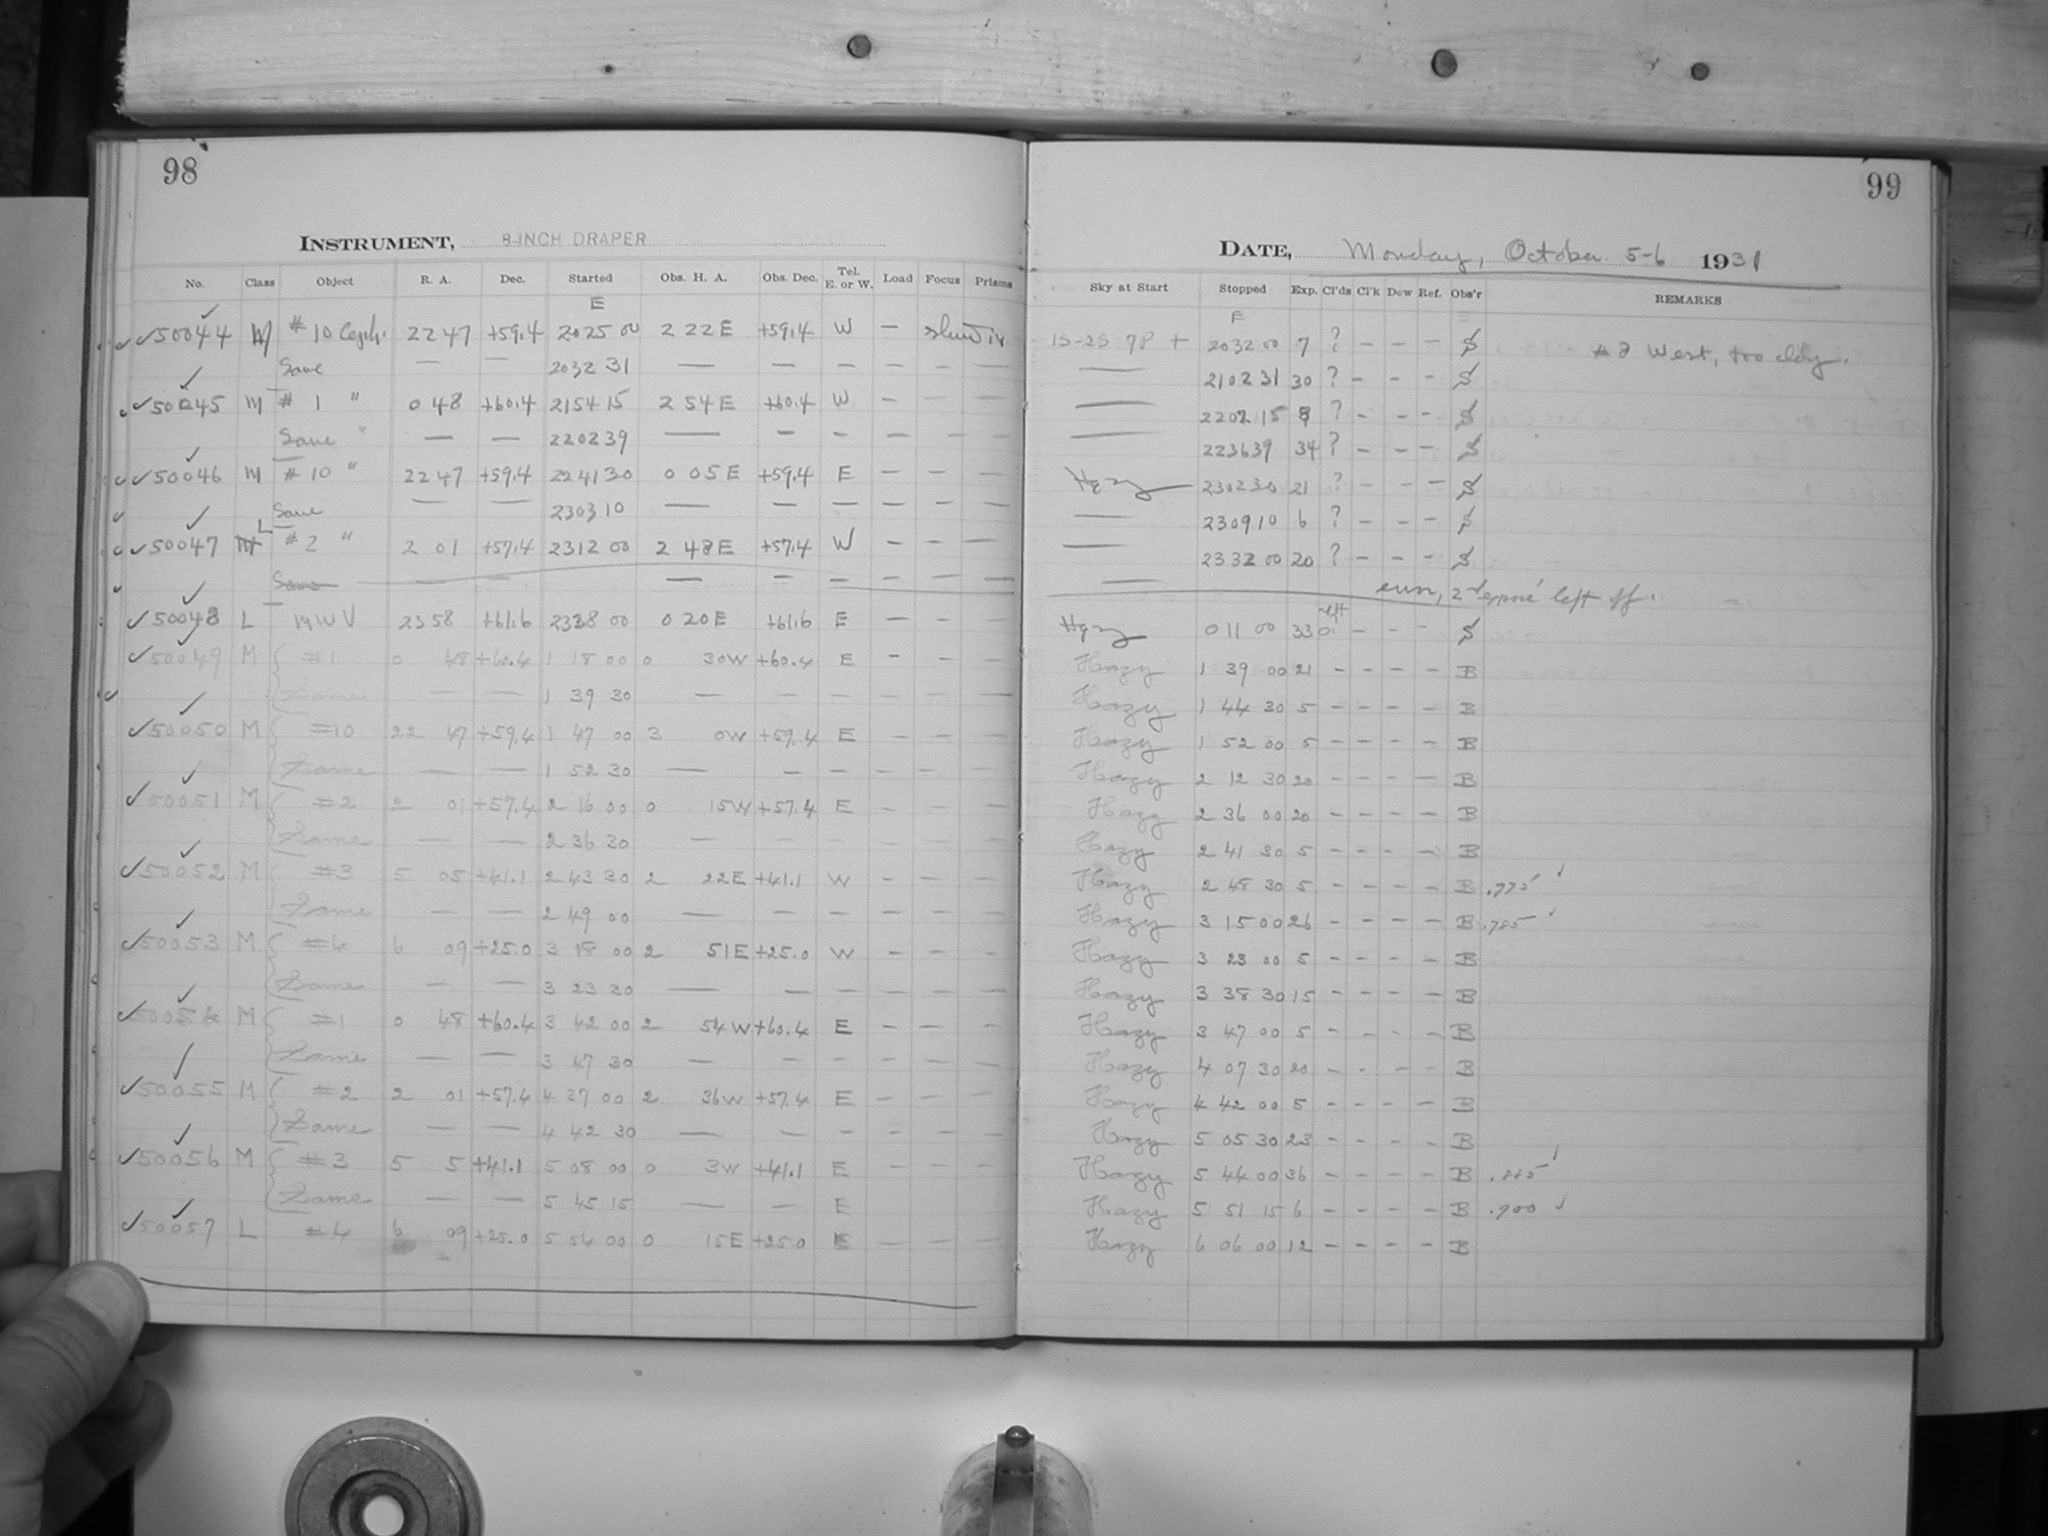 98
INSTRUMENT, 8-INCH DRAPER
No. Class Object R. A. Dec. Started Obs. H. A. Obs. Dec. Tel. E. or W. Load Focus Prisms
E
✓50044 M # 10 Ceph. 22 47 +59.4 20 25 00 2 22 E +59.4 W —
Same — — 20 32 31 — — — — — —
✓50045 M # 1 " 0 48 +60.4 21 54 15 2 54 E +60.4 W — — —
Same " — — 22 02 39 — — — — — —
✓50046 M # 10 " 22 47 +59.4 22 41 30 0 05 E +59.4 E — — —
Same — — 23 03 10 — — — — — —
✓50047 L # 2 " 2 01 +57.4 23 12 00 2 48 E +57.4 W — — —
Same — — — — — — — —
✓50048 L MWV 23 58 +61.6 23 38 00 0 20 E +61.6 E — — —
✓50049 M #1 0 48 +60.4 1 18 00 0 30 W +60.4 E — — —
Same — — 1 39 30 — — — — — —
✓50050 M #10 22 47 +59.4 1 47 00 3 0 W +59.4 E — — —
Same — — 1 52 30 — — — — — —
✓50051 M #2 2 01 +57.4 2 16 00 0 15 W +57.4 E — — —
Same — — 2 36 30 — — — — — —
✓50052 M #3 5 05 +41.1 2 43 30 2 22 E +41.1 W — — —
Same — — 2 49 00 — — — — — —
✓50053 M #4 6 09 +25.0 3 18 00 2 51 E +25.0 W — — —
Same — — 3 23 30 — — — — — —
✓50054 M #1 0 48 +60.4 3 42 00 2 54 W +60.4 E — — —
Same — — 3 47 30 — — — — — —
✓50055 M #2 2 01 +57.4 4 37 00 2 36 W +57.4 E — — —
Same — — 4 42 30 — — — — — —
✓50056 M #3 5 5 +41.1 5 08 00 0 3 W +41.1 E — — —
Same — — 5 45 15 — — E
✓50057 L #4 6 09 +25.0 5 54 00 0 15 E +25.0 E — — —
99
DATE, Monday, October 5-6 1931
Sky at Start Stopped Exp. Cl'ds Cl'k Dew Ref. Obs'r REMARKS
E
1S-2S 7P + 20 32 00 7 ? — — — S # 2 West, too cldy.
— 21 02 31 30 ? — — — S
— 22 02 15 8 ? — — — S
— 22 36 39 34 ? — — — S
Hazy 23 02 30 21 ? — — — S
— 23 09 10 6 ? — — — S
— 23 32 00 20 ? — — — S
— error, 2nd expose left off.
Hazy 0 11 00 33 — — — S
Hazy 1 39 00 21 — — — — B
Hazy 1 44 30 5 — — — — B
Hazy 1 52 00 5 — — — — B
Hazy 2 12 30 20 — — — — B
Hazy 2 36 00 20 — — — — B
Hazy 2 41 30 5 — — — — B
Hazy 2 48 30 5 — — — — B .775
Hazy 3 15 00 26 — — — — B .785
Hazy 3 23 00 5 — — — — B
Hazy 3 38 30 15 — — — — B
Hazy 3 47 00 5 — — — — B
Hazy 4 07 30 20 — — — — B
Hazy 4 42 00 5 — — — — B
Hazy 5 05 30 23 — — — — B
Hazy 5 44 00 36 — — — — B .885
Hazy 5 51 15 6 — — — — B .900
Hazy 6 06 00 12 — — — — B